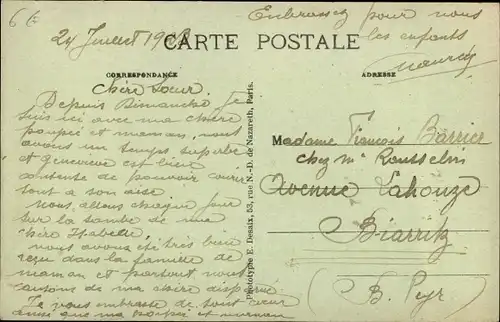 6 €
Embrassez pour nous
les enfants
24 Juillet
CARTE POSTALE
CORRESPONDANCE
ADRESSE
Chère Soeur
Depuis Dimanche Je
suis ici avec ma chère
poupée et maman, nous
avons un temps superbe
et Geneviève est bien
contente de pouvoir courir
tout a son aise
nous allons chaque jour
sur la tombe de
chère Isabelle
nous avons été très bien
reçu dans la famille de
maman et partout nous
causons de ma chère
Je vous embrasse de tout coeur
ainsi que ma poupée et maman
Phototypie E. Desaix, 53, rue N.-D. de Nazareth, Paris.
Madame François Barrier
chez Mr
Avenue Lahouze
Biarritz
(B. Pyr)